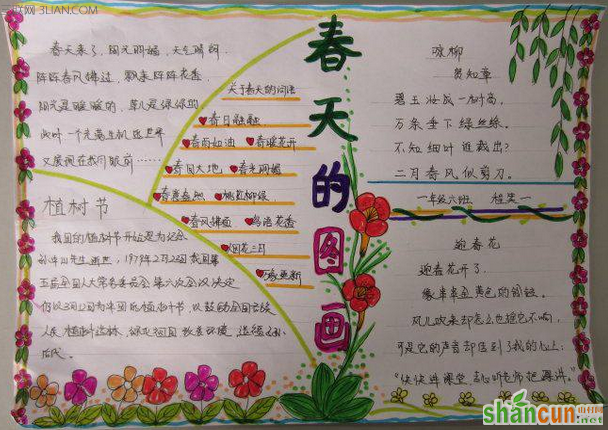 3LIAN.COM
春天的图画
春天来了，阳光明媚，天气晴朗，
阵阵春风拂过，飘来阵阵花香，
阳光是暖暖的，草儿是绿绿的
又展现在我们眼前……
关于春天的词语
春日融融
春雨如油 春暖花开
春回大地 春光明媚
春意盎然 桃红柳绿
春风拂面 鸟语花香
烟花三月
万象更新
植树节
我国的植树节开始是为纪念
孙中山先生逝世，1979年2月23日我国第
五届全国人大常务委员会第六次会议决定
仍以3月12日为中国的植树节，以鼓励全国各族
人民植树造林，绿化祖国
后代。
咏柳
贺知章
碧玉妆成一树高，
万条垂下绿丝绦。
不知细叶谁裁出？
二月春风似剪刀。
一年级六班
迎春花
迎春花开了，
像串串金黄色的铃铛。
风儿吹来却怎么也摇它不响，
可是它的声音却留到了我的心上：
shancun
山村网
.net